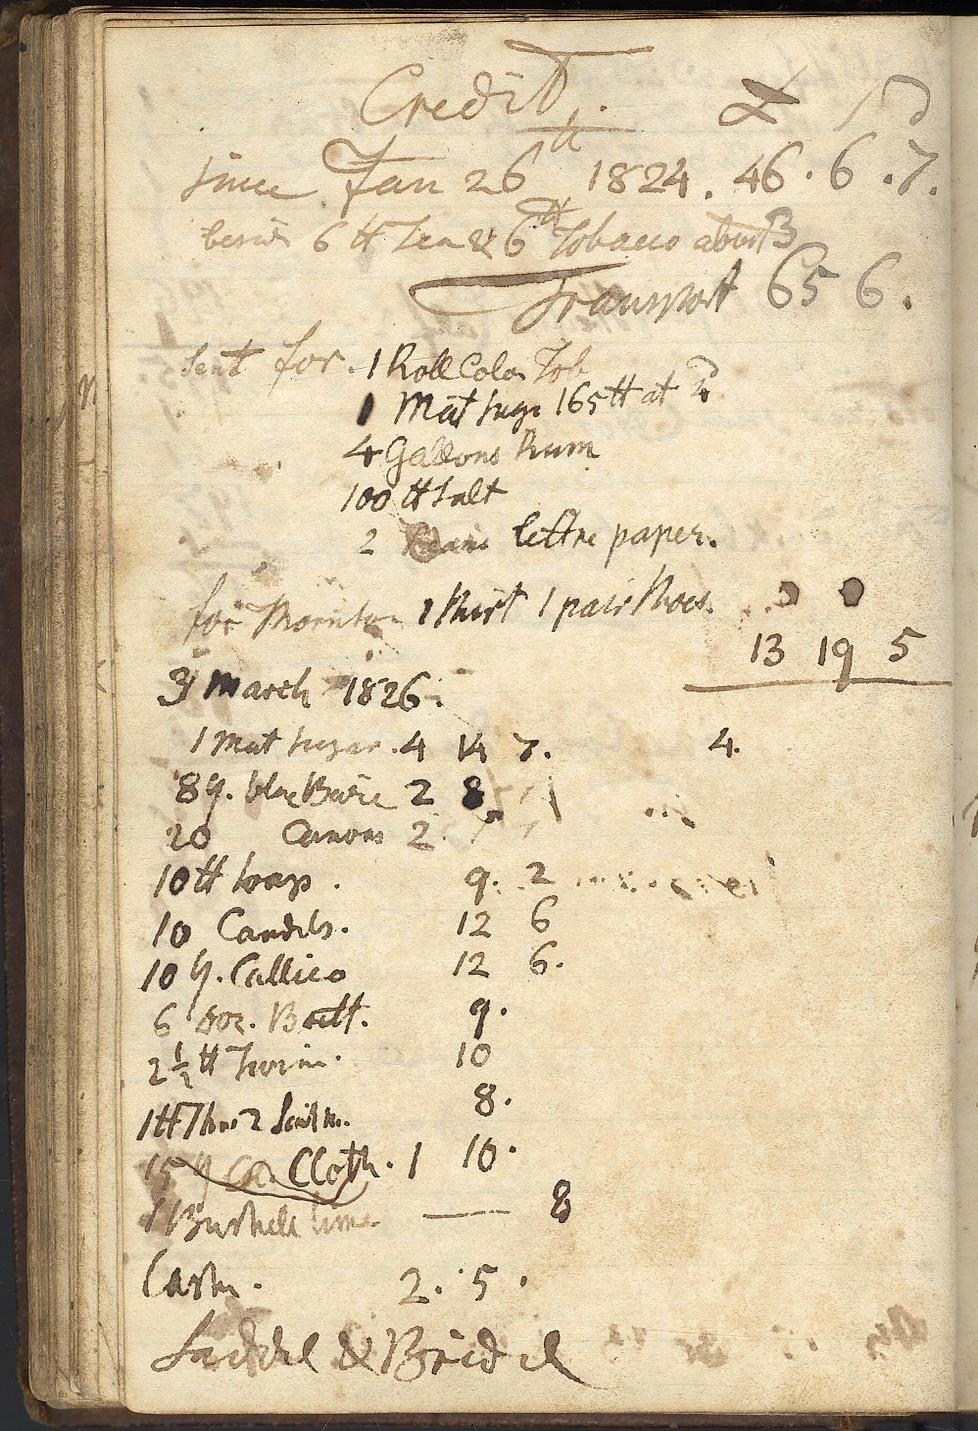 Credit. £ s d
since Jan 26th 1824. 46. 6. 7.
besid 6 ℔ Tea & 6 ℔ Tobacco about 3
Transport 65 6.
Sent for. 1 Roll Colo Tob
1 Mat sugr 165 ℔ at
4 Gallons Rum
100 ℔ Salt
2 Reams lettre paper.
for Thornton 1 Shirt 1 pair Shoes.
13 19 5
31 March 1826.
1 Mat sugar. 4 14 7. 4.
8 y. blue 2 8
20 2
10 ℔ Soap. 9. 2
10 Candls. 12 6
10 y. Callico 12 6.
6 doz. Bott. 9.
2½ ℔ Twin. 10
1 ℔ 8.
15 y Cloth. 1 10.
1 Bushell lime — 8
Cash. 2. 5.
Saddel & Bridel